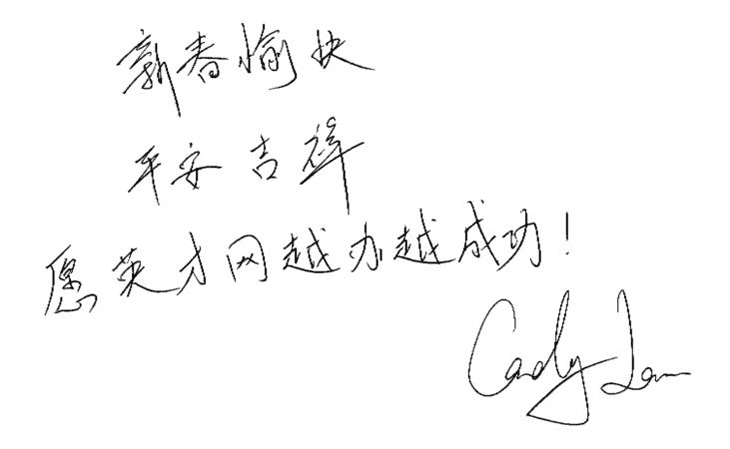 新春愉快
平安吉祥
愿英才网越办越成功!